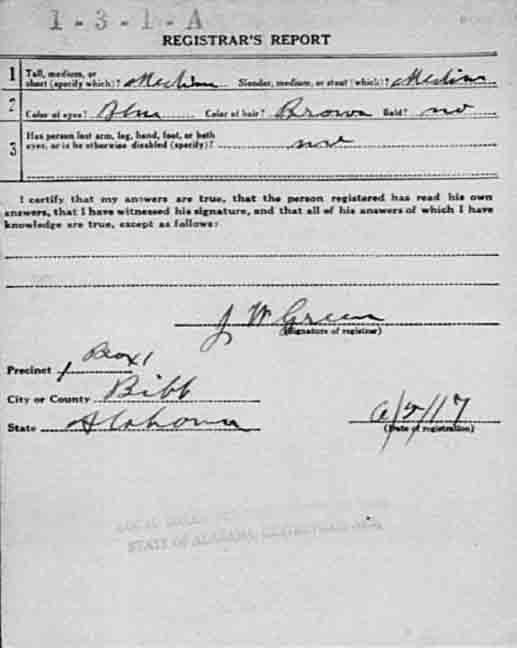 1 - 3 - 1 - A
REGISTRAR'S REPORT
1 Tall, medium, or short (specify which)? Medium Slender, medium, or stout (which)? Medium
2 Color of eyes? Blue Color of hair? Brown Bald? no
3 Has person lost arm, leg, hand, foot, or both eyes, or is he otherwise disabled (specify)? no
I certify that my answers are true, that the person registered has read his own
answers, that I have witnessed his signature, and that all of his answers of which I have
knowledge are true, except as follows:
J W Green
(Signature of registrar)
Precinct 1 Box 1
City or County Bibb
State Alabama
6/5/17
(Date of registration)
LOCAL BOARD
STATE OF ALABAMA,